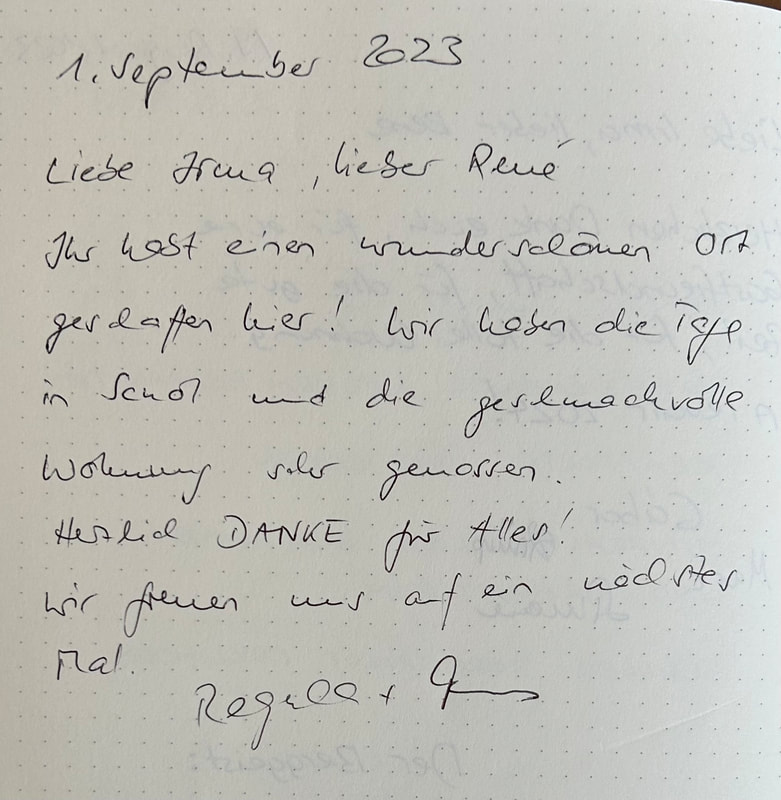 1. September 2023
Liebe Irma, lieber René
Ihr habt einen wunderschönen Ort
geschaffen hier! Wir haben die Tage
in Scuol und die geschmackvolle
Wohnung sehr genossen.
Herzlich DANKE für Alles!
Wir freuen uns auf ein nächstes
Mal.
Regula +